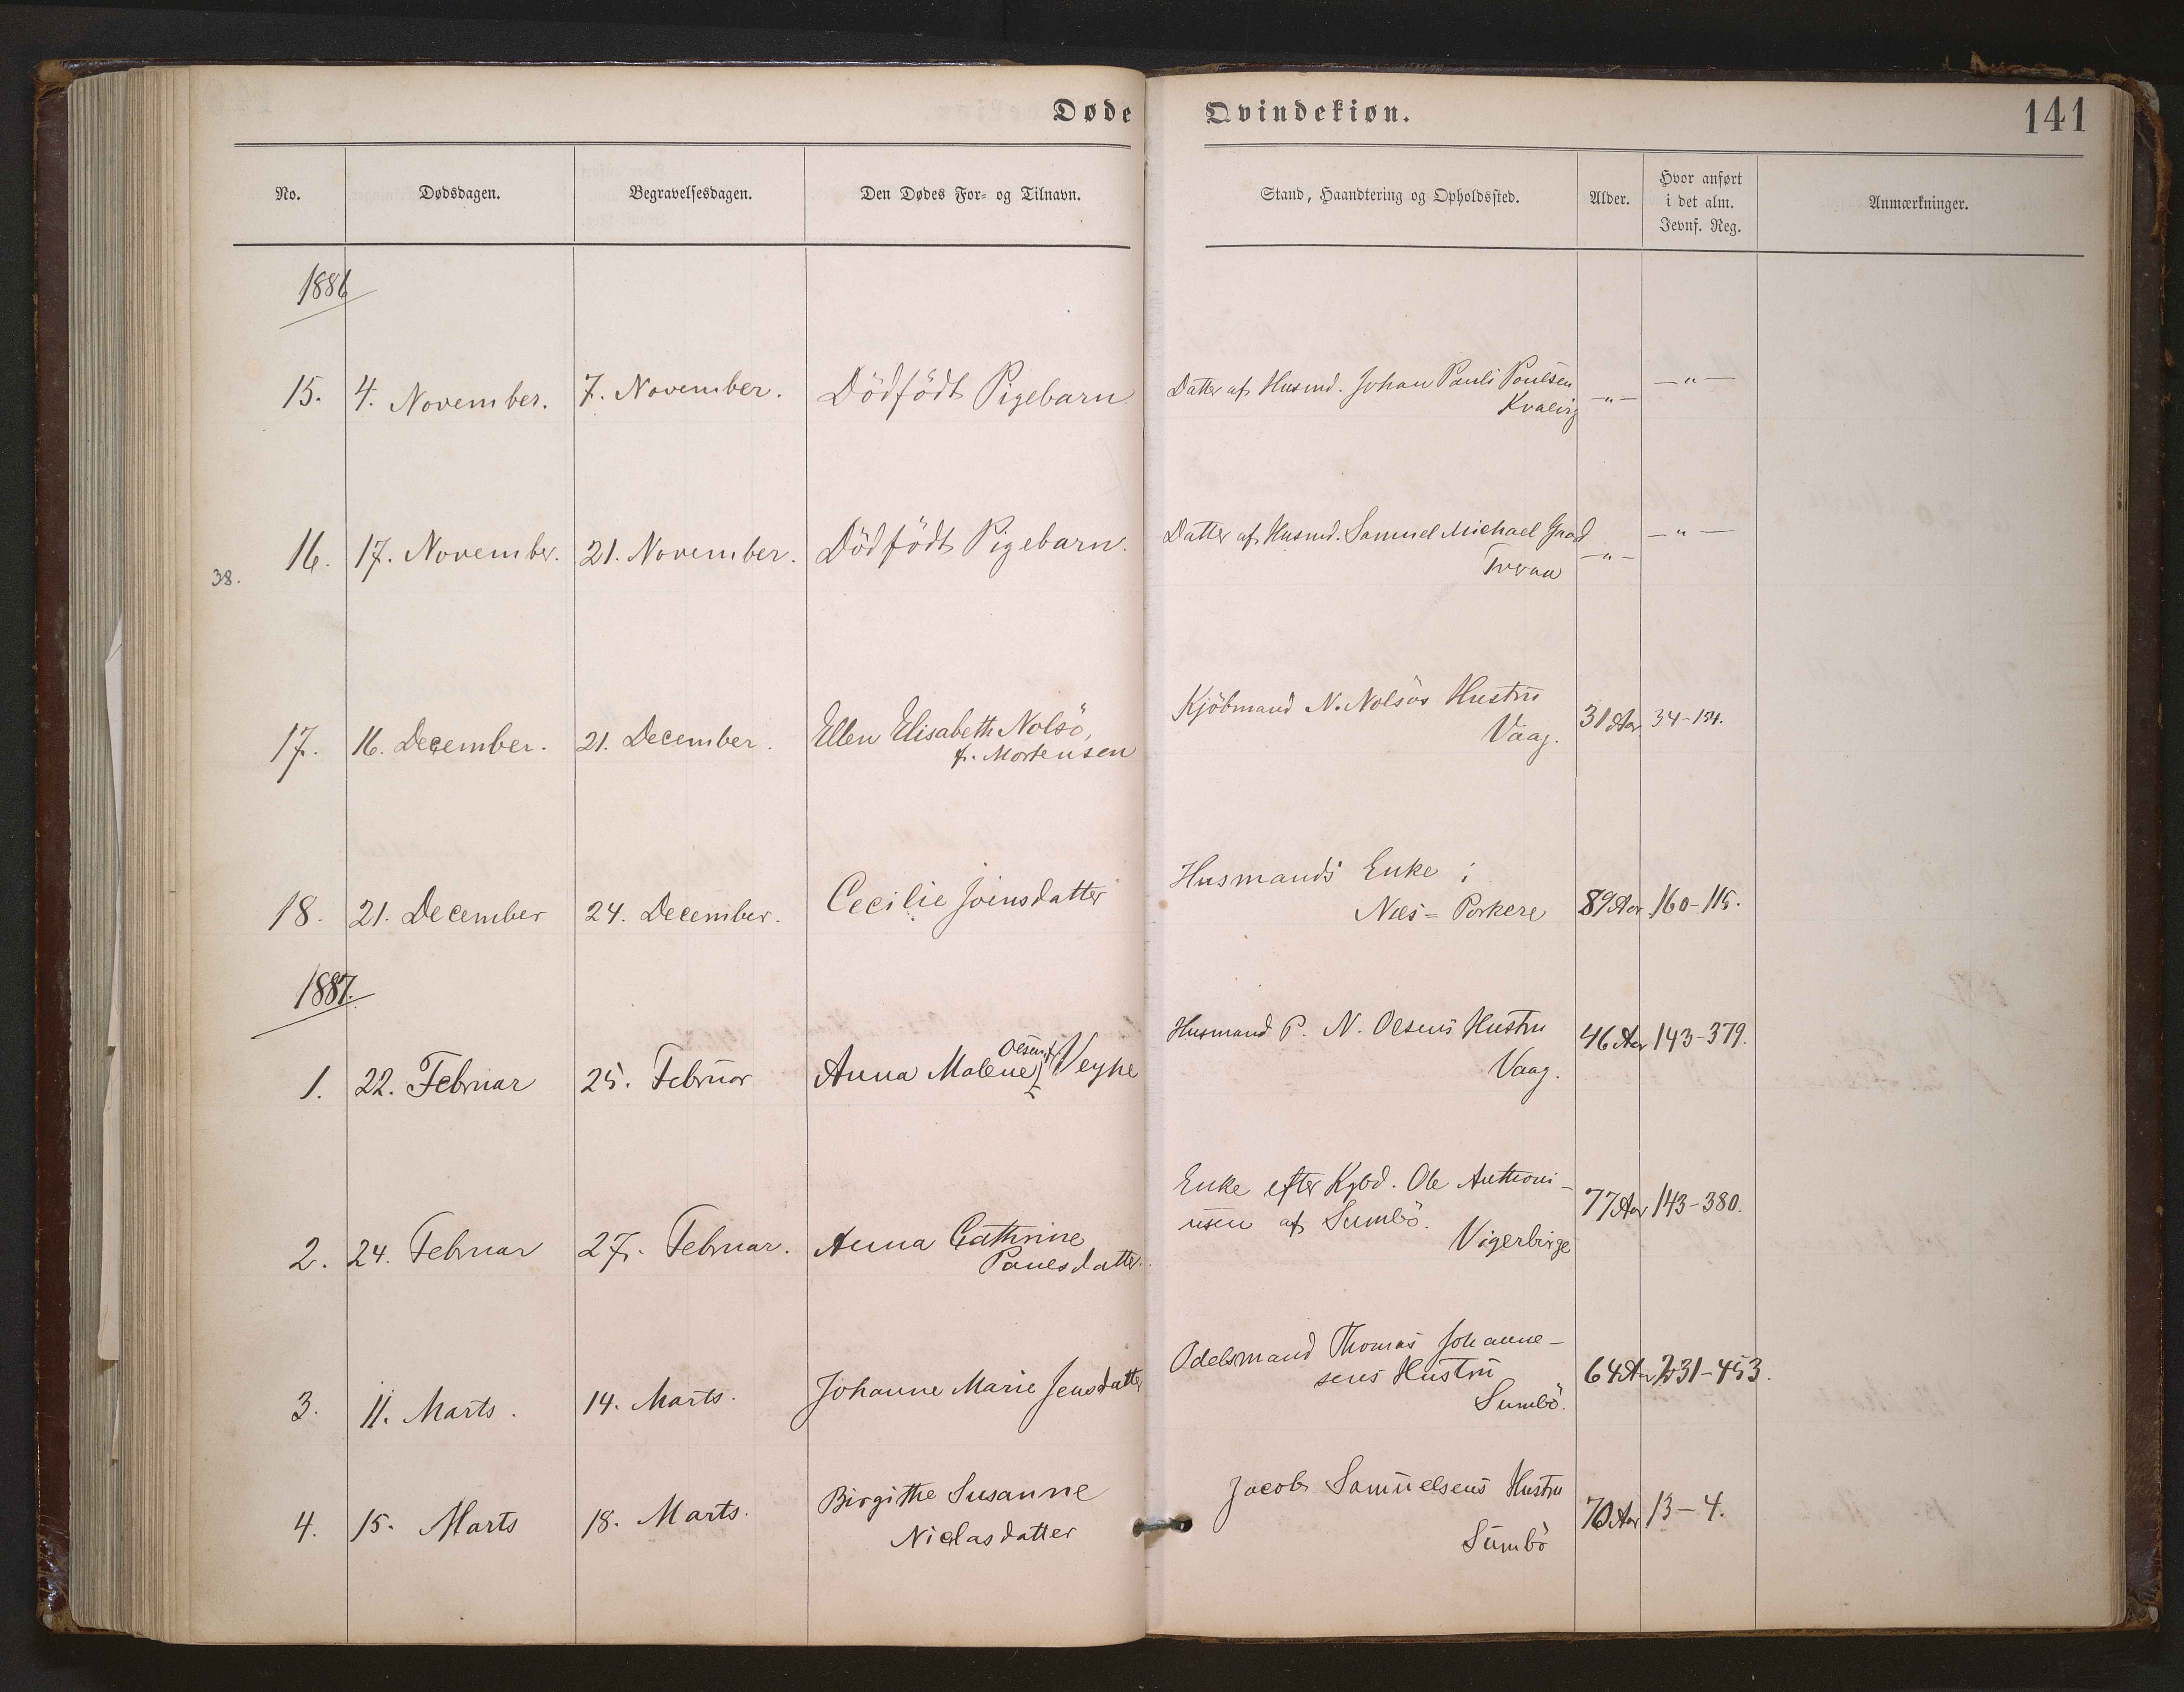 Døde Qvindekiøn. 141
No. Dødsdagen. Begravelsesdagen. Den Dødes For- og Tilnavn. Stand, Haandtering og Opholdssted. Alder. Hvor anført i det alm. Jevnf. Reg. Anmærkninger.
1886
15. 4. November. 7. November. Dödfödt Pigebarn Datter af Husmd. Johan Pauli Poulsen — " — — " —
Kvalvig
16. 17. November. 21. November. Dödfödt Pigebarn. Datter af Husmd. Samuel Michael — " — — " —
38. Tvraa
17. 16. December. 21. December. Ellen Elisabeth Nolsö, Kjöbmand N. Nolsös Hustru 31 Aar 34-134.
f. Mortensen Vaag.
18. 21. December 24. December. Cecilie Joensdatter Husmands Enke i 89 Aar 160-115.
Næs = Porkere
1887.
1. 22. Februar 25. Februar Anna Malene Olsen f. Veyhe Husmand P. N. Olsens Hustru 46 Aar 143-379.
Vaag.
2. 24. Februar 27. Februar. Anna Cathrine Enke efter Kgbd. Ole Anthoni- 77 Aar 143-380.
Pouesdatter. usen af Sumbö.
Vigerbirge
3. 11. Marts. 14. Marts. Johanne Marie Jensdatter Odelsmand Thomas Johanne- 64 Aar 231-453.
sens Hustru
Sumbö.
4. 15. Marts 18. Marts. Birgithe Susanne Jacob Samuelsens Hustru 70 Aar 13-4.
Niclasdatter Sumbö